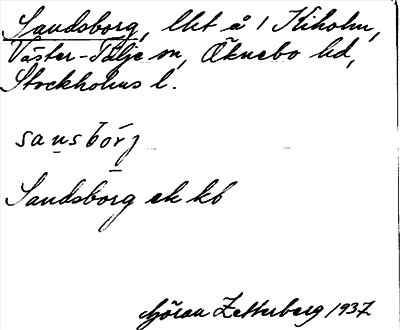 Sandsborg, lht å 1 Kiholm,
Väster-Tälje sn, Öknebo hd,
Stockholms l.
sansbórj
Sandsborg ek kb
Göran Zetterberg 1937